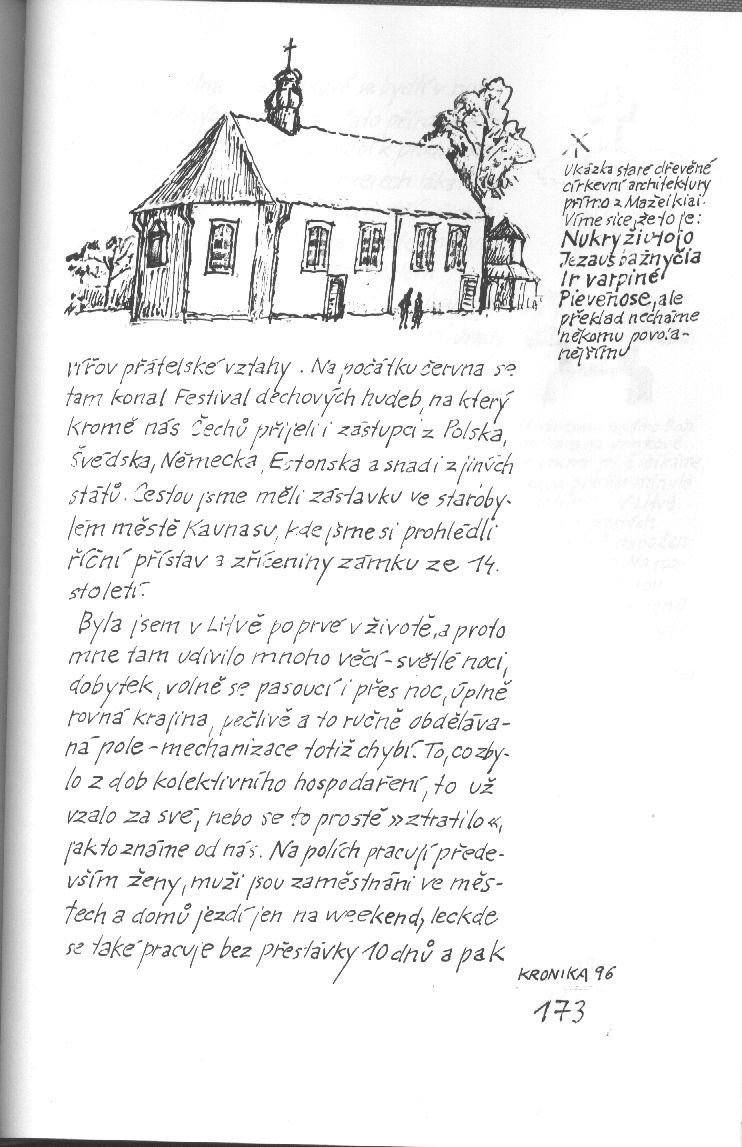 Ukázka staré dřevěné
církevní architektury
přímo z Mažeikiai.
Víme sice, že to je:
Nukryživtojo
Jezaus bažnyčia
Ir varpiné
Pievenose, ale
překlad necháme
někomu povola-
nejšímu
vířov přátelské vztahy. Na počátku června se
tam konal Festival dechových hudeb, na který
kromě nás Čechů přijeli i zástupci z Polska,
Švédska, Německa, Estonska a snad i z jiných
států. Cestou jsme měli zastávku ve staroby-
lém městě Kaunasu, kde jsme si prohlédli
říční přístav a zříceniny zámku ze 14.
století.
Byla jsem v Litvě poprvé v životě, a proto
mne tam udivilo mnoho věcí - světlé noci,
dobytek, volně se pasoucí i přes noc, úplně
rovná krajina, pečlivě a to ručně obdělává-
ná pole - mechanizace totiž chybí. To, co zby-
lo z dob kolektivního hospodaření, to už
vzalo za své, nebo se to prostě »ztratilo«,
jak to známe od nás. Na polích pracují přede-
vším ženy, muži jsou zaměstnáni ve měs-
tech a domů jezdí jen na weekend, leckde
se také pracuje bez přestávky 10 dnů a pak
KRONIKA 96
173